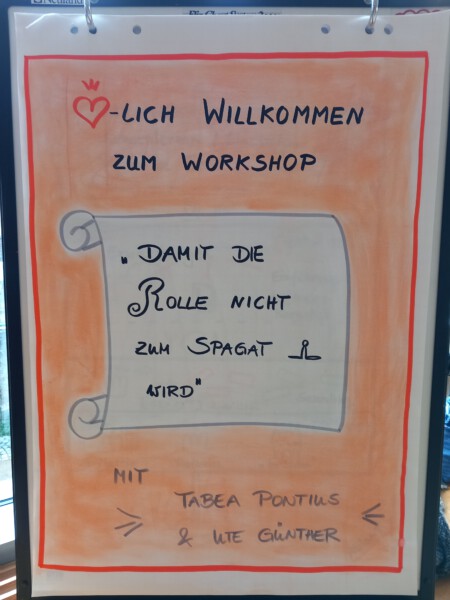 -LICH WILLKOMMEN
ZUM WORKSHOP
„DAMIT DIE
ROLLE NICHT
ZUM SPAGAT
WIRD"
MIT
TABEA PONTIUS
& UTE GÜNTHER